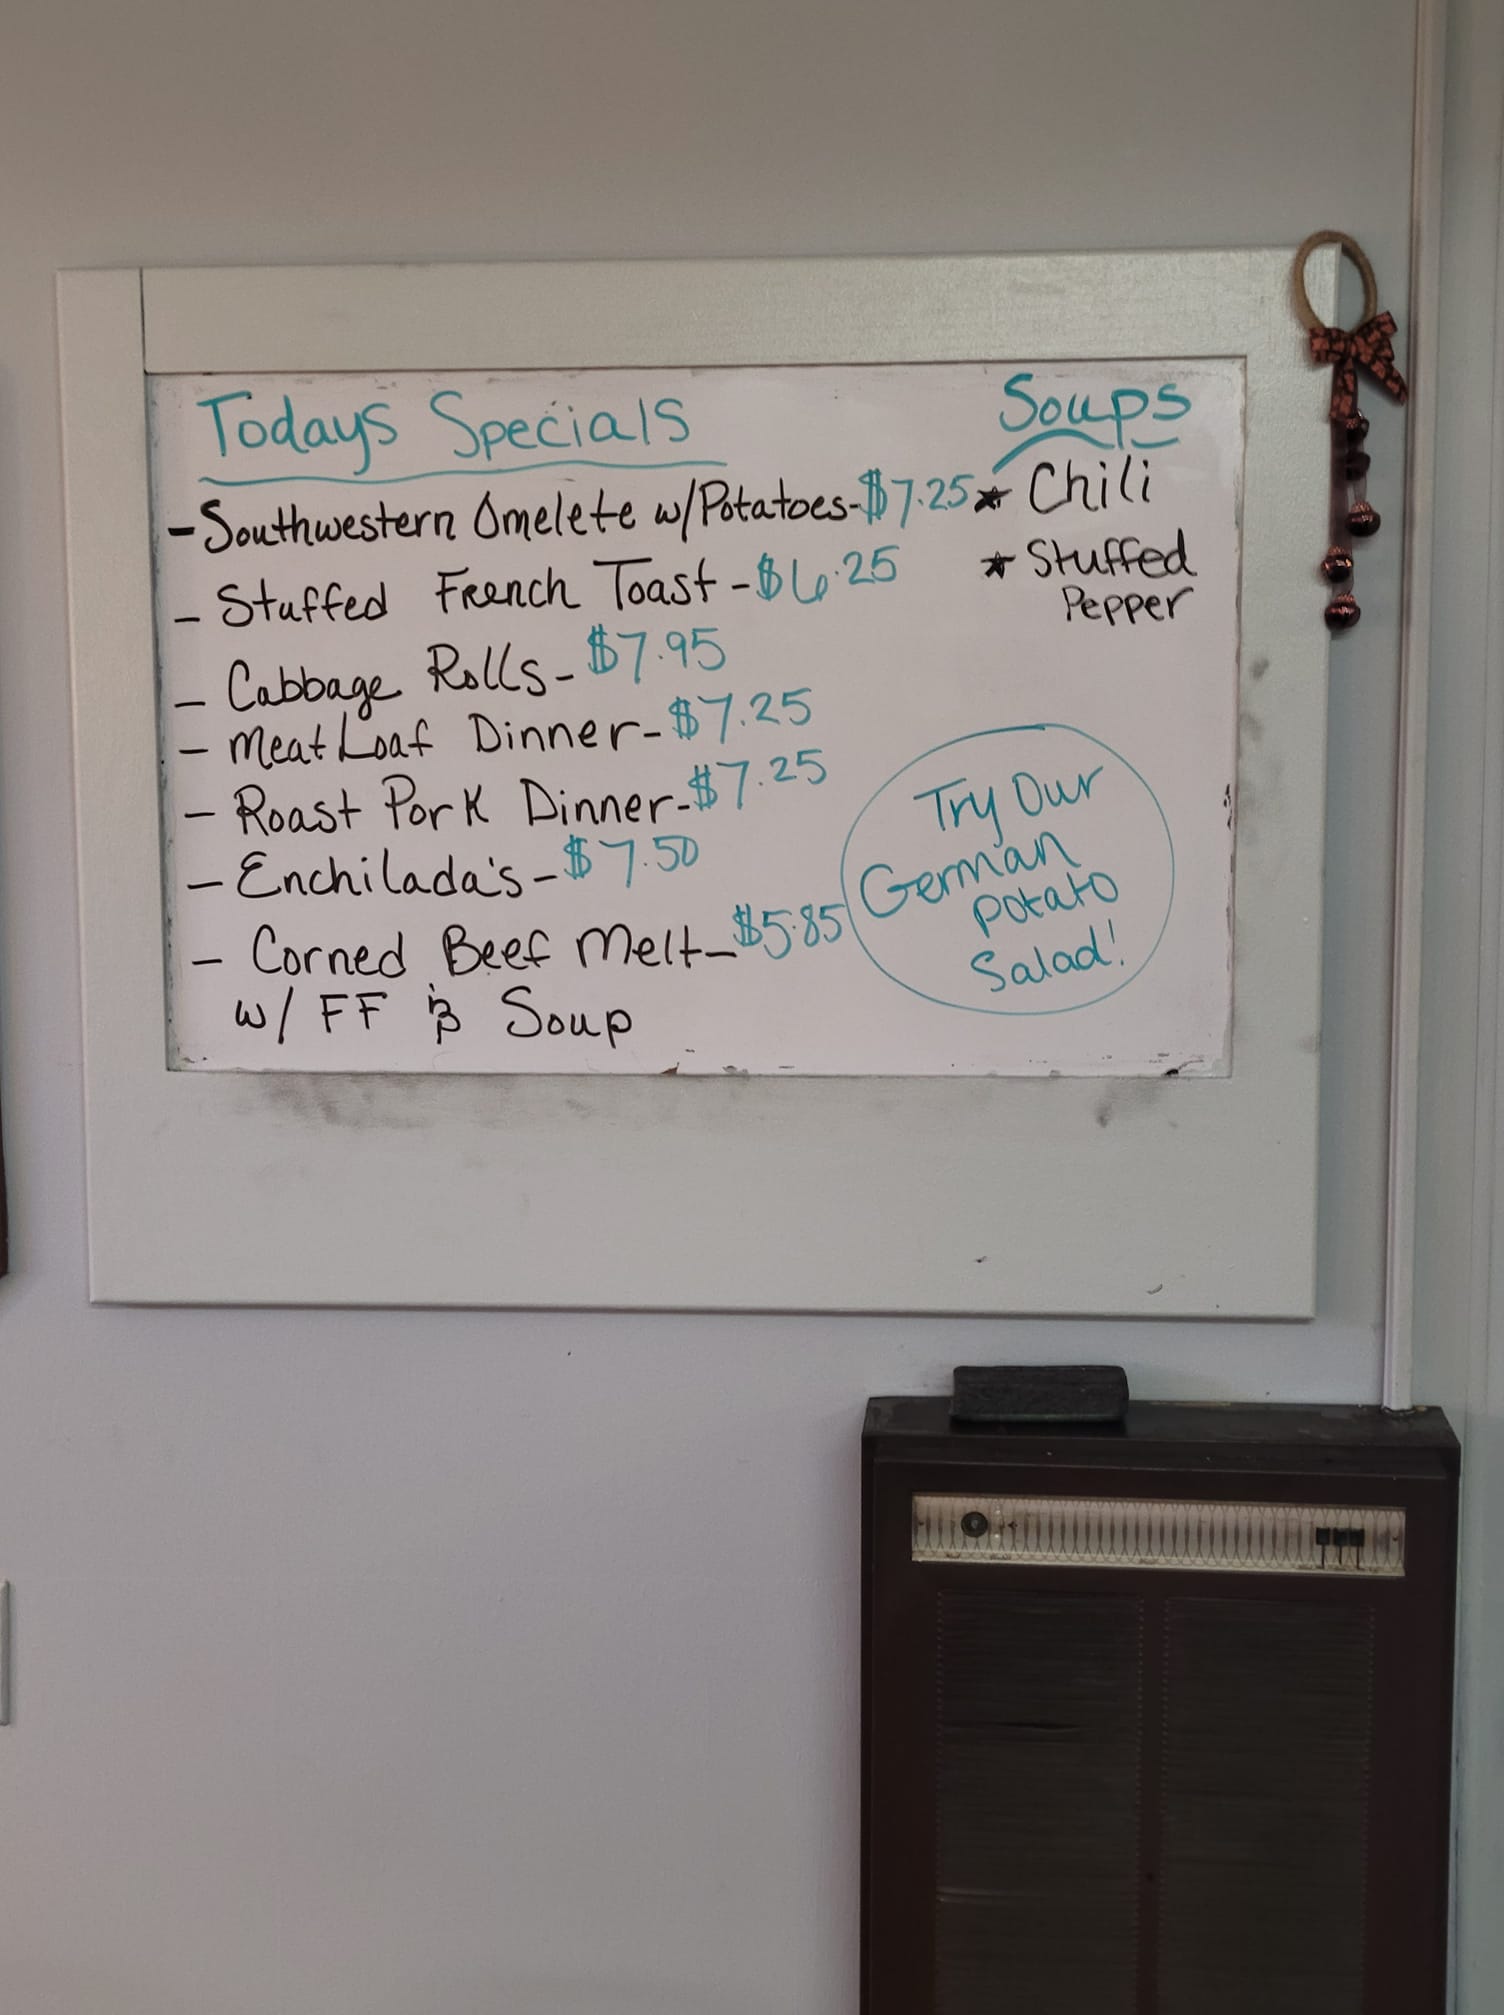 Todays Specials
- Southwestern Omelete w/Potatoes-$7.25
- Stuffed French Toast -$6.25
- Cabbage Rolls- $7.95
- Meat Loaf Dinner- $7.25
- Roast Pork Dinner-$7.25
- Enchilada's -$7.50
- Corned Beef Melt- $5.85
w/ FF & Soup
Soups
* Chili
* Stuffed
Pepper
Try Our
German
Potato
Salad!